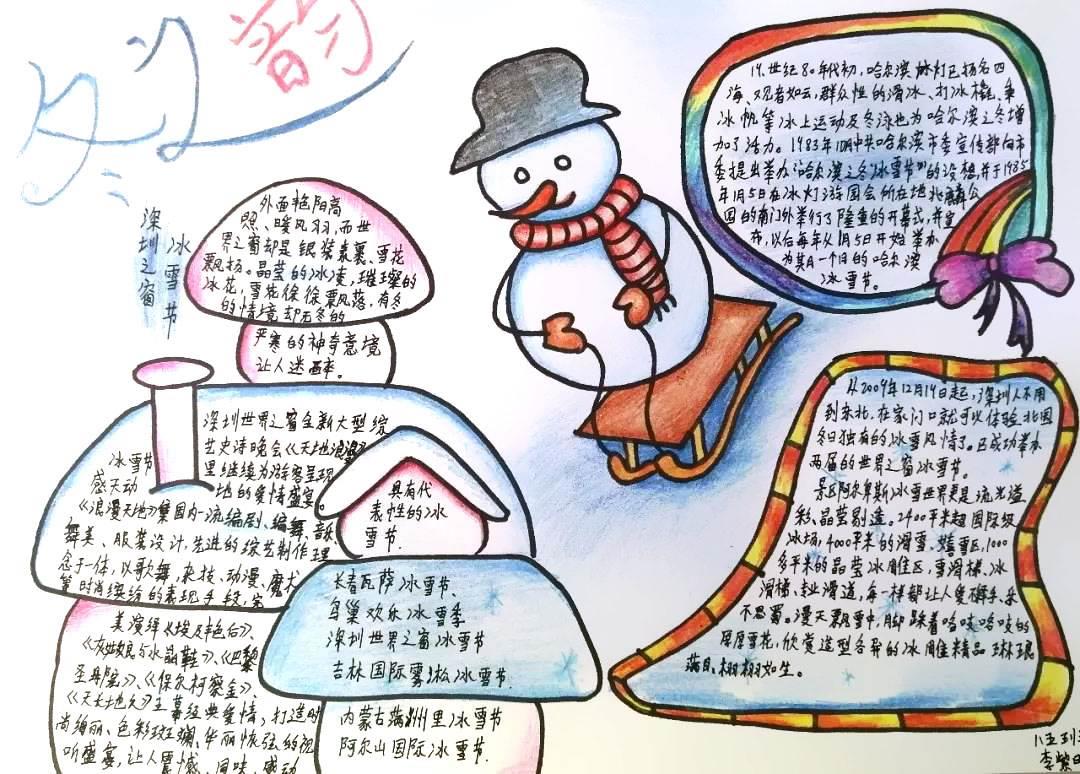 冬之韵
深圳之窗
冰雪节
外面艳阳高
照、暖风习习,而世
界之窗却是银装素裹、雪花
飘扬。晶莹的冰凌,璀璨的
冰花,雪花徐徐飘落,有冬
的情境却无冬的
严寒的神奇意境
让人迷醉。
深圳世界之窗全新大型综
艺史诗晚会《天地浪漫》
里继续为游客呈现
冰雪节
感天动地的爱情盛宴。
《浪漫天地》集国内一流编剧、编舞、音乐、
舞美、服装设计,先进的综艺制作理
念于一体,以歌舞,杂技、动漫、魔术
等时尚缤纷的表现手段,完
美演绎《埃及艳后》、
《灰姑娘与水晶鞋》、《巴黎
圣母院》、《保尔柯察金》、
《天长地久》五幕经典爱情,打造时
尚绚丽、色彩斑斓、华丽恢弦的视
听盛宴,让人震撼、回味、感动
具有代
表性的冰
雪节.
长春瓦萨冰雪节、
鸟巢欢乐冰雪季
深圳世界之窗冰雪节
吉林国际雾凇冰雪节
内蒙古满洲里冰雪节
阿尔山国际冰雪节.
世纪80年代初,哈尔滨冰灯已扬名四
海、观者如云,群众性的滑冰、打冰橇、乘
冰帆等冰上运动及冬泳也为哈尔滨之冬增
加了活力。1983年10月中共哈尔滨市委宣传部向市
委提出举办“哈尔滨之冬冰雪节”的设想,并于1985
年1月5日在冰灯游园会所在地兆麟公
园的南门外举行了隆重的开幕式,并宣
布,以后每年从1月5日开始举办
为其月一个月的哈尔滨
冰雪节。
从2009年12月19日起,深圳人不用
到东北,在家门口就可以体验北国
冬日独有的冰雪风情了。已成功举办
两届的世界之窗冰雪节。
景区阿尔卑斯冰雪世界更是流光溢
彩、晶莹剔透。2400平米超国际级
冰场,4000平米的滑雪、嬉雪区,1000
多平米的晶莹冰雕区,雪滑梯、冰
滑梯、滑道,每一样都让人爱不释手、乐
不思蜀。漫天飘雪中,脚踩着哈吱哈吱的
厚厚雪花,欣赏造型各异的冰雕精品琳琅
满目、栩栩如生。